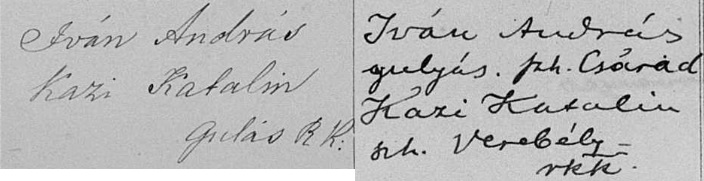 Iván András
Kazi Katalin
gulás R K.
Iván András
gulyás. szh. Csárad
Kazi Katalin
szh. Verebély
rkk.